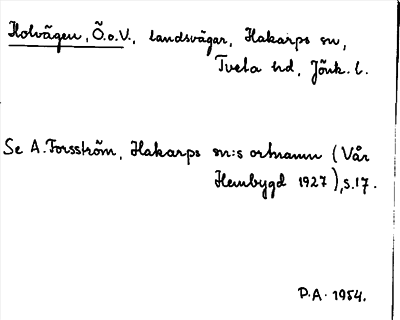 Holvägen, Ö.o.V., landsvägar, Hakarps sn,
Tveta hd, Jönk. l.
Se A. Forsström, Hakarps sn:s ortnamn (Vår
Hembygd 1927), s.17.
P.A. 1954.